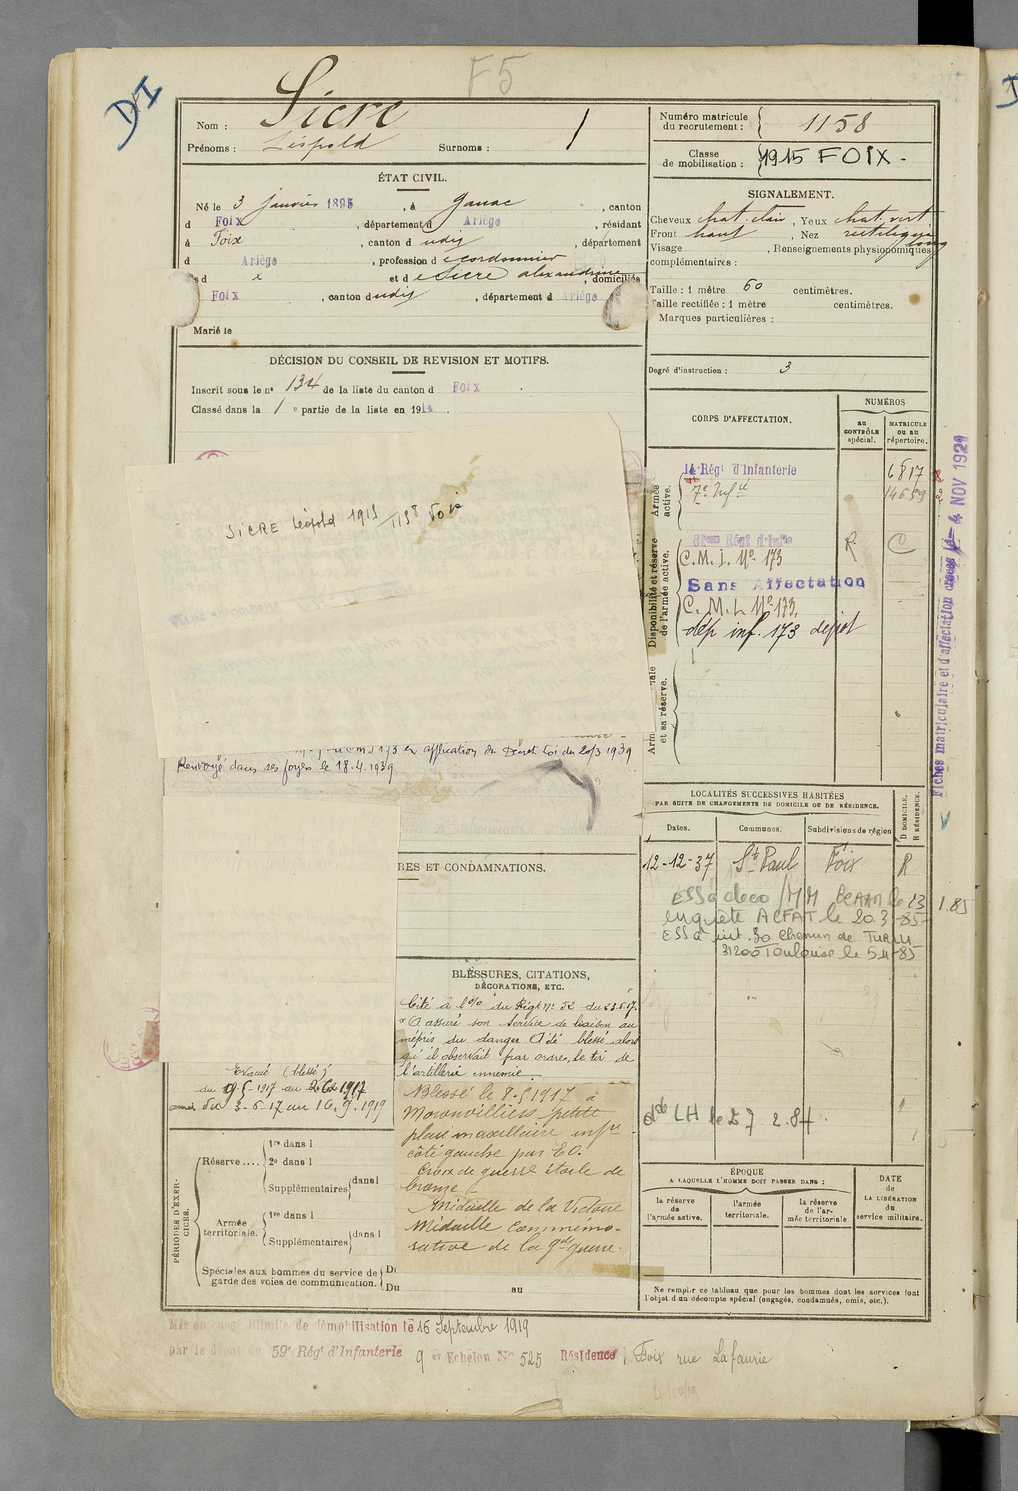 F5
DI
Nom : Sicre
Prénoms : Léopold Surnoms : /
Numéro matricule du recrutement : 1158
Classe de mobilisation : 1915 FOIX -
ÉTAT CIVIL.
Né le 3 janvier 1895, à Ganac, canton
d Foix, département d Ariège, résidant
à Foix, canton d udit, département
d Ariège, profession d cordonnier
s d x et d Sicre Alexandrine, domiciliés
Foix, canton dudit, département d Ariège
Marié le
SIGNALEMENT.
Cheveux chat. clair, Yeux chat. vert
Front haut, Nez rectiligne long
Visage , Renseignements physionomiques
complémentaires :
Taille : 1 mètre 60 centimètres.
Taille rectifiée : 1 mètre centimètres.
Marques particulières :
Degré d'instruction : 3
DÉCISION DU CONSEIL DE REVISION ET MOTIFS.
Inscrit sous le n° 134 de la liste du canton d Foix.
Classé dans la 1e partie de la liste en 1914.
SICRE Léopold 1915 1158 Foix
173 en application du Décret Loi du 20/3 1939
Renvoyé dans ses foyers le 18.4.1939
CORPS D'AFFECTATION.
NUMÉROS
au CONTRÔLE spécial.
MATRICULE ou au répertoire.
Armée active.
14 Régt d'Infanterie 6817
7e Infie 14659
Disponibilité et réserve de l'armée active.
Régt d'Infie R C
C.M.I. No. 173
Sans Affectation
C.M.I. No 173.
dép. inf. 173 dépôt
et sa réserve.
Fiches matriculaire et d'affectation 4 NOV 1921
LOCALITÉS SUCCESSIVES HABITÉES
PAR SUITE DE CHANGEMENTS DE DOMICILE OU DE RÉSIDENCE.
Dates. Communes. Subdivisions de région D DOMICILE. R RÉSIDENCE.
12-12-37 St Paul Foix R
ESS à deco /MM BCAAM le 23 1.85
enquête ACFAT le 20.3-85-
30 Chemin de
31200 Toulouse le
RES ET CONDAMNATIONS.
BLESSURES, CITATIONS,
DÉCORATIONS, ETC.
Cité à l'o/o du Régt N: 52 du 23.5.17.
"A assuré son service de liaison au
mépris du danger. A été blessé alors
qu'il observait par ordre, le tir de
l'artillerie ennemie.
Blessé le 8-5 1917 à
Moronvilliers petite
plaie maxillaire infre
côté gauche par E.O.
Croix de guerre étoile de
bronze.
Médaille de la Victoire
Médaille Commémo-
rative de la gde guerre.
Evacué (blessé)
du 9-5 1917 au 2-6-1917
du 3-6-17 au 16.9.1919
LH le 27 2.84.
PÉRIODES D'EXERCICES.
Réserve....
1re dans l
2e dans l
Supplémentaires dans l
Armée territoriale.
1re dans l
Supplémentaires dans l
Spéciales aux hommes du service de garde des voies de communication.
Du
Du au
ÉPOQUE
A LAQUELLE L'HOMME DOIT PASSER DANS :
la réserve de l'armée active.
l'armée territoriale.
la réserve de l'armée territoriale
DATE de LA LIBÉRATION du service militaire.
Ne remplir ce tableau que pour les hommes dont les services font
l'objet d'un décompte spécial (engagés, condamnés, omis, etc.).
Mis en congé illimité de démobilisation le 16 Septembre 1919
par le dépôt du 59e Régt d'Infanterie 9e Echelon No 525 Résidence Foix rue Lafaurie